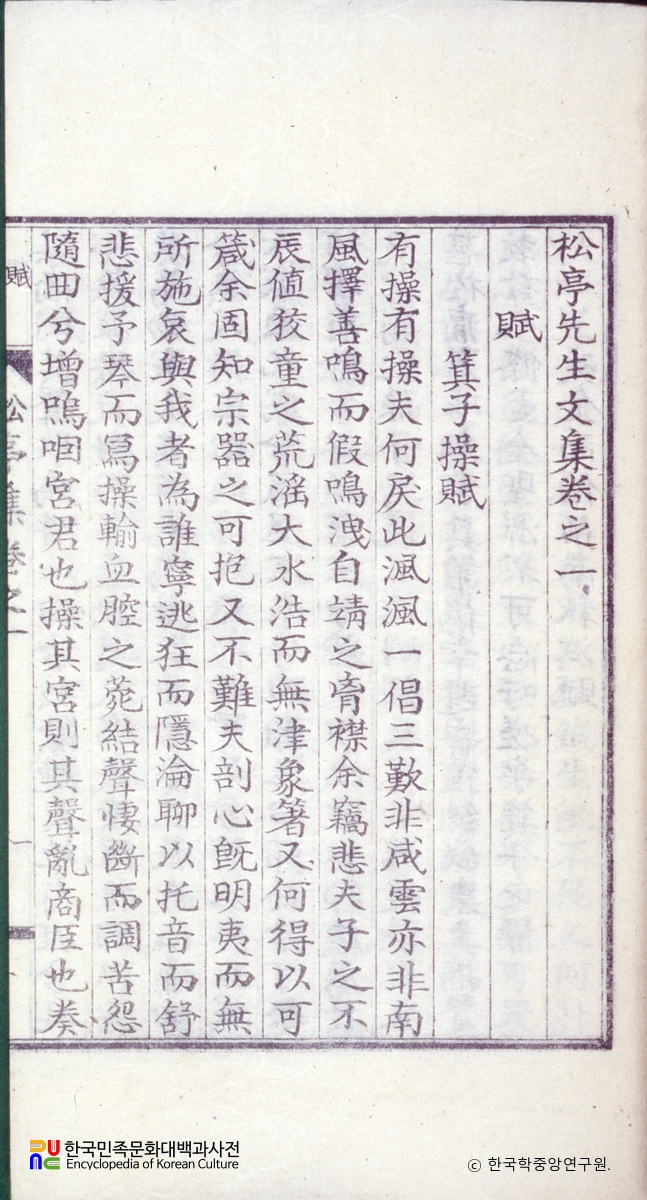 松亭先生文集卷之一
賦
箕子操賦
有操有操夫何戾此渢渢一倡三歎非咸雲亦非南
風擇善鳴而假鳴洩自靖之胷襟余竊悲夫子之不
辰値狡童之荒淫大水浩而無津象箸又何得以可
箴余固知宗器之可抱又不難夫剖心旣明夷而無
所施哀與我者為誰寧逃狂而隱淪聊以托音而舒
悲援予琴而寫操輸血腔之菀結聲悽斷而調苦怨
隨曲兮增嗚咽宮君也操其宮則其聲亂商臣也奏
賦
松亭集卷之一
一
한국민족문화대백과사전
Encyclopedia of Korean Culture
© 한국학중앙연구원.